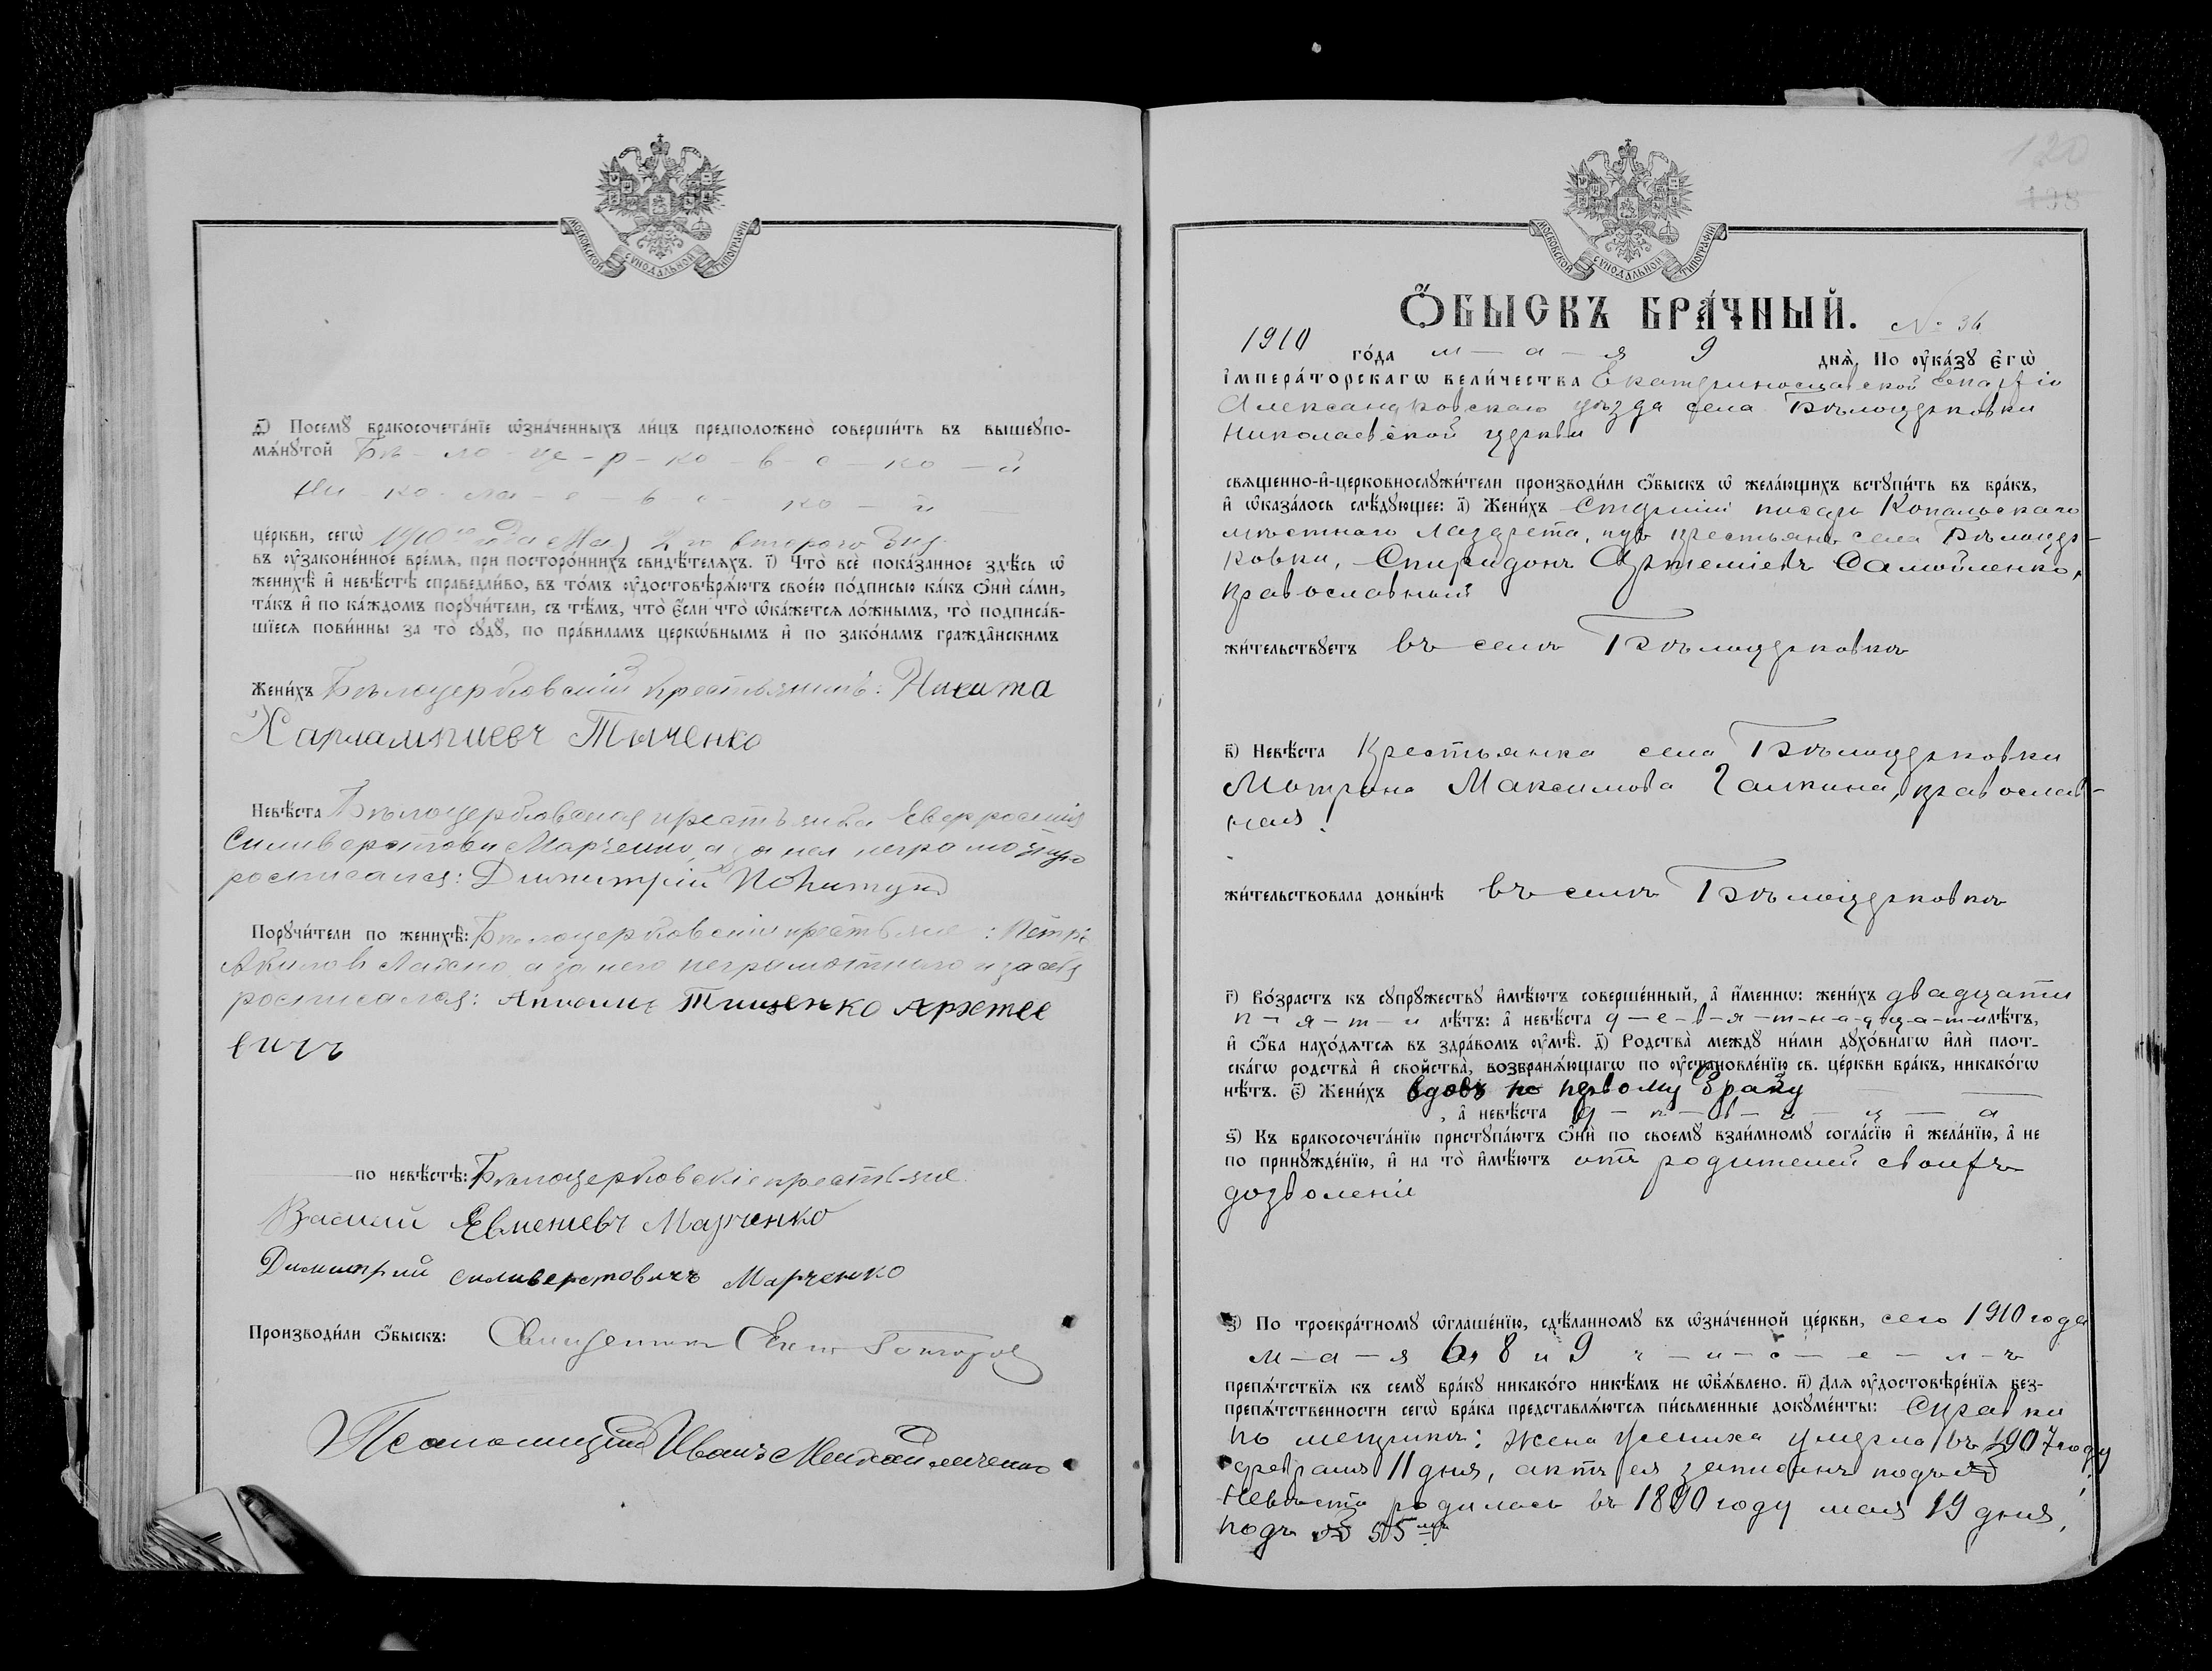 МОСКОВСКОЙ СУНОДАЛЬНОЙ ТИПОГРАФІИ
д҃і) Посемꙋ бракосочета́нїе ѡ҆зна́ченныхъ ли́цъ предположено̀ соверши́ть въ вышеꙋпо-
мѧ́нꙋтой Бѣ-ло-це-р-ко-в-с-ко-й
Ни-ко-ла-е-в-с-ко-й
це́ркви, сегѡ̀ 1910го года Мая 2го второго дня
въ ᲂу҆законе́нное вре́мѧ, при посторо́ннихъ свидѣ́телѧхъ. і҃) Что̀ всѐ пока́занное здѣ́сь ѡ҆
женихѣ̀ и҆ невѣ́стѣ справедли́во, въ то́мъ ᲂу҆достовѣрѧ́ютъ свое́ю по́дписью ка́къ ѻ҆нѝ са́ми,
та́къ и҆ по ка́ждомъ порꙋчи́тели, съ тѣ́мъ, что̀ є҆́сли что̀ ѡ҆ка́жетсѧ ло́жнымъ, то̀ подписа́в-
шїесѧ пови́нны за то̀ сꙋдꙋ̀, по пра́виламъ церкѡ́внымъ и҆ по зако́намъ гражда̂нскимъ
Жени́хъ Бѣлоцерковскій крестьянинъ: Никита
Харлампиевъ Тыченко
Невѣ́ста Бѣлоцерковская крестьянка Евфросинія
Силиверстова Марченко, а за нея неграмотную
росписался: Димитрій
Порꙋчи́тели по женихѣ̀: Бѣлоцерковскіе крестьяне: Петръ
а за него неграмотнаго и за себя
росписался: Тищенко Артее
вичъ
по невѣ́стѣ: Бѣлоцерковскіе крестьяне
Василий Евмениевъ Марченко
Димитрий Силиверстовичъ Марченко
Производи́ли ѻ҆́быскъ: Священникъ
Псаломщикъ Иванъ
120
198
МОСКОВСКОЙ СУНОДАЛЬНОЙ ТИПОГРАФІИ
Ѻ҆́БЫСКЪ БРА́ЧНЫЙ. № 36
1910 го́да м-а-я 9 днѧ̀. По ᲂу҆ка́зꙋ є҆гѡ̀
і҆мпера́торскагѡ вели́чества Екатеринославской Епархіи
Александровскаго уѣзда села Бѣлоцерковки
Николаевской церкви
свѧщенно-и҆-церковнослꙋжи́тели производи́ли ѻ҆́быскъ ѡ҆ жела́ющихъ встꙋпи́ть въ бра́къ,
и҆ ѡ҆каза́лось слѣ́дꙋющее: а҃) Жени́хъ Старшій писарь Копальскаго
мѣстнаго лазарета, изъ крестьянъ села Бѣлоцер-
ковки, Спиридонъ Артеміевъ Самойленко,
православный
жи́тельствꙋетъ въ селѣ Бѣлоцерковкѣ
в҃) Невѣ́ста Крестьянка села Бѣлоцерковки
Матрона Максимова Галкина, православ-
ная.
жи́тельствовала доны́нѣ въ селѣ Бѣлоцерковкѣ
г҃) Во́зрастъ къ сꙋпрꙋ́жествꙋ и҆мѣ́ютъ соверше́нный, а҆ и҆́меннѡ: жени́хъ двадцати
п-я-т-и лѣ́тъ: а҆ невѣ́ста д-е-в-я-т-н-а-д-ц-а-т-и лѣ́тъ,
и҆ ѻ҆́ба нахо́дѧтсѧ въ здра́вомъ ᲂу҆мѣ̀. д҃) Родства̀ междꙋ̀ ни́ми дꙋхо́внагѡ и҆лѝ плот-
ска́гѡ родства̀ и҆ сво́йства̀, возбранѧ́ющагѡ по ᲂу҆становле́нїю св. це́ркви бра́къ, никако́гѡ
нѣ́тъ. є҃) Жени́хъ вдовъ по первому браку
, а҆ невѣ́ста д-ѣ-в-и-ц-а
ѕ҃) Къ бракосочета́нїю пристꙋпа́ютъ ѻ҆нѝ по своемꙋ̀ взаи́мномꙋ согла́сїю и҆ жела́нїю, а҆ не
по принꙋжде́нїю, и҆ на то̀ и҆мѣ́ютъ отъ родителей своихъ
дозволеніе
з҃) По троекра́тномꙋ ѡ҆глаше́нїю, сдѣ́ланномꙋ въ ѡ҆зна́ченной це́ркви, сего 1910 года
м-а-я 6, 8 и 9 ч-и-с-е-л-ъ
препѧ́тствїѧ къ семꙋ̀ бра́кꙋ никако́го никѣ́мъ не ѡ҆б̾ѧ́влено. и҃) Длѧ ᲂу҆достовѣре́нїѧ без-
препѧ́тственности сегѡ̀ бра́ка представлѧ́ютсѧ пи́сьменные докꙋме́нты: Справки
по метрикѣ: Жена жениха умерла въ 1907 году
февраля 11 дня, актъ ея записанъ подъ №
Невѣста родилась въ 1890 году мая 19 дня,
подъ № 55мъ